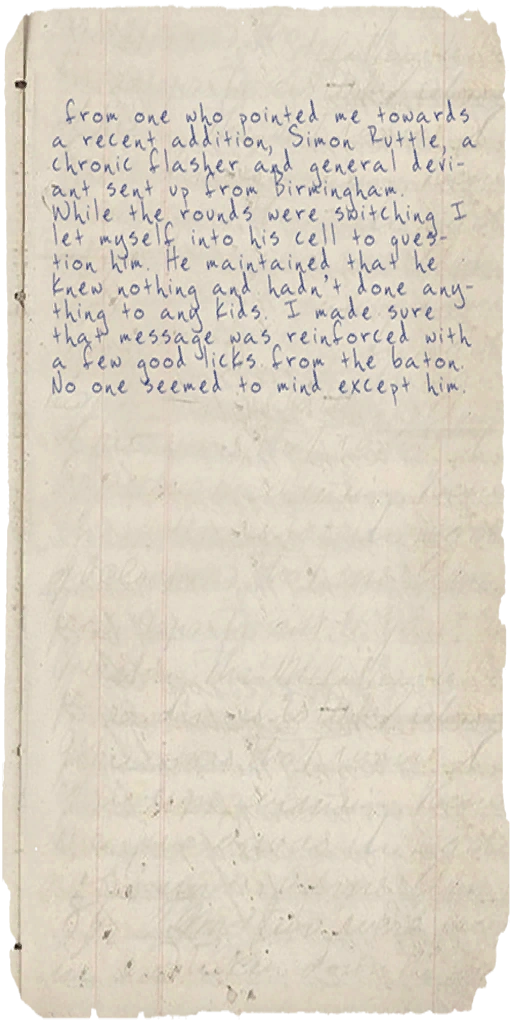 from one who pointed me towards
a recent addition, Simon Ruttle, a
chronic flasher and general devi-
ant sent up from Birmingham.
While the rounds were switching I
let myself into his cell to ques-
tion him. He maintained that he
knew nothing and hadn't done any-
thing to any kids. I made sure
that message was reinforced with
a few good licks from the baton.
No one seemed to mind except him.